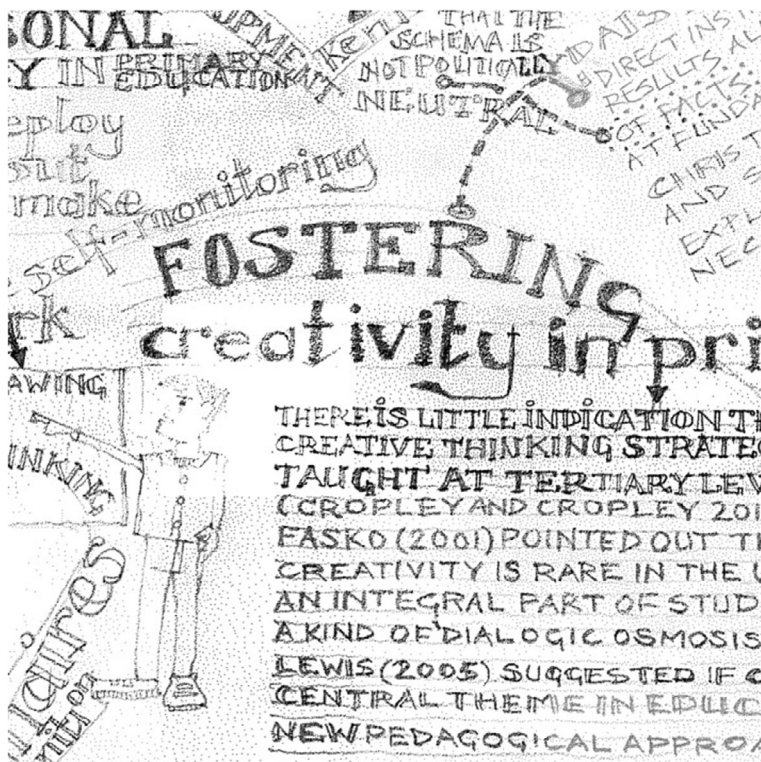 SONAL
Y IN PRIMARY
EDUCATION
OPMENT
THAT THE
SCHEMA IS
NOT POLITICALLY
NEUTRAL
DIRECT INS
RESULTS AL
OF FACTS.
AT FUNDA
CHRIS T
AND S
EXPL
NEC
eploy
out
make
self-monitoring
rk
FOSTERING
creativity in pri
AWING
INKING
THERE IS LITTLE INDICATION TH
CREATIVE THINKING STRATEG
TAUGHT AT TERTIARY LEV
(CROPLEY AND CROPLEY 201
FASKO (2001) POINTED OUT TH
CREATIVITY IS RARE IN THE U
AN INTEGRAL PART OF STUD
A KIND OF 'DIALOGIC OSMOSIS
LEWIS (2005) SUGGESTED IF C
CENTRAL THEME IN EDUC
NEW PEDAGOGICAL APPROA